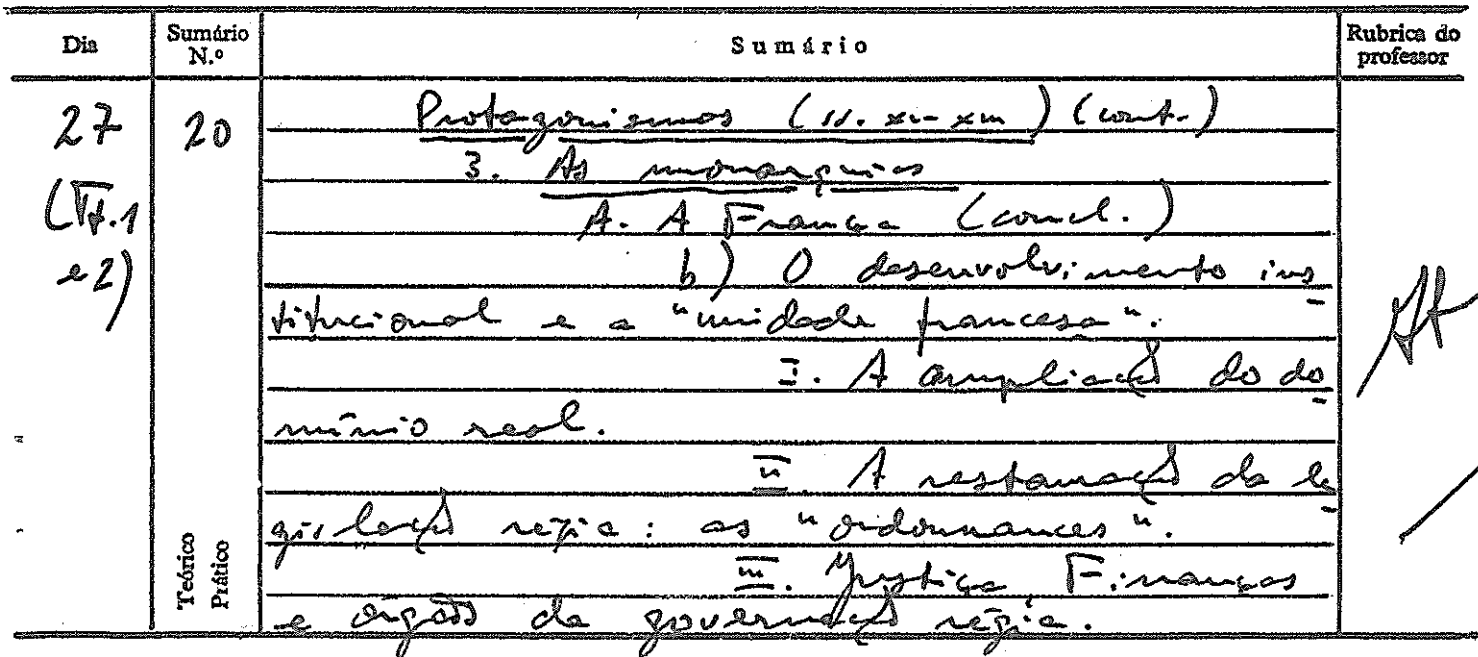 Dia Sumário N.º Sumário Rubrica do professor
27 20 Protagonismos (ss. XI-XIII) (cont.)
3. As monarquias
(Tt.1 A. A França (concl.)
e 2) b) O desenvolvimento ins
titucional e a "unidade francesa".
I. A ampliação do do
mínio real.
II. A restauração da le
gislação régia: as "ordonnances".
III. Justiça, Finanças
e órgãos da governação régia.
Teórico
Prático